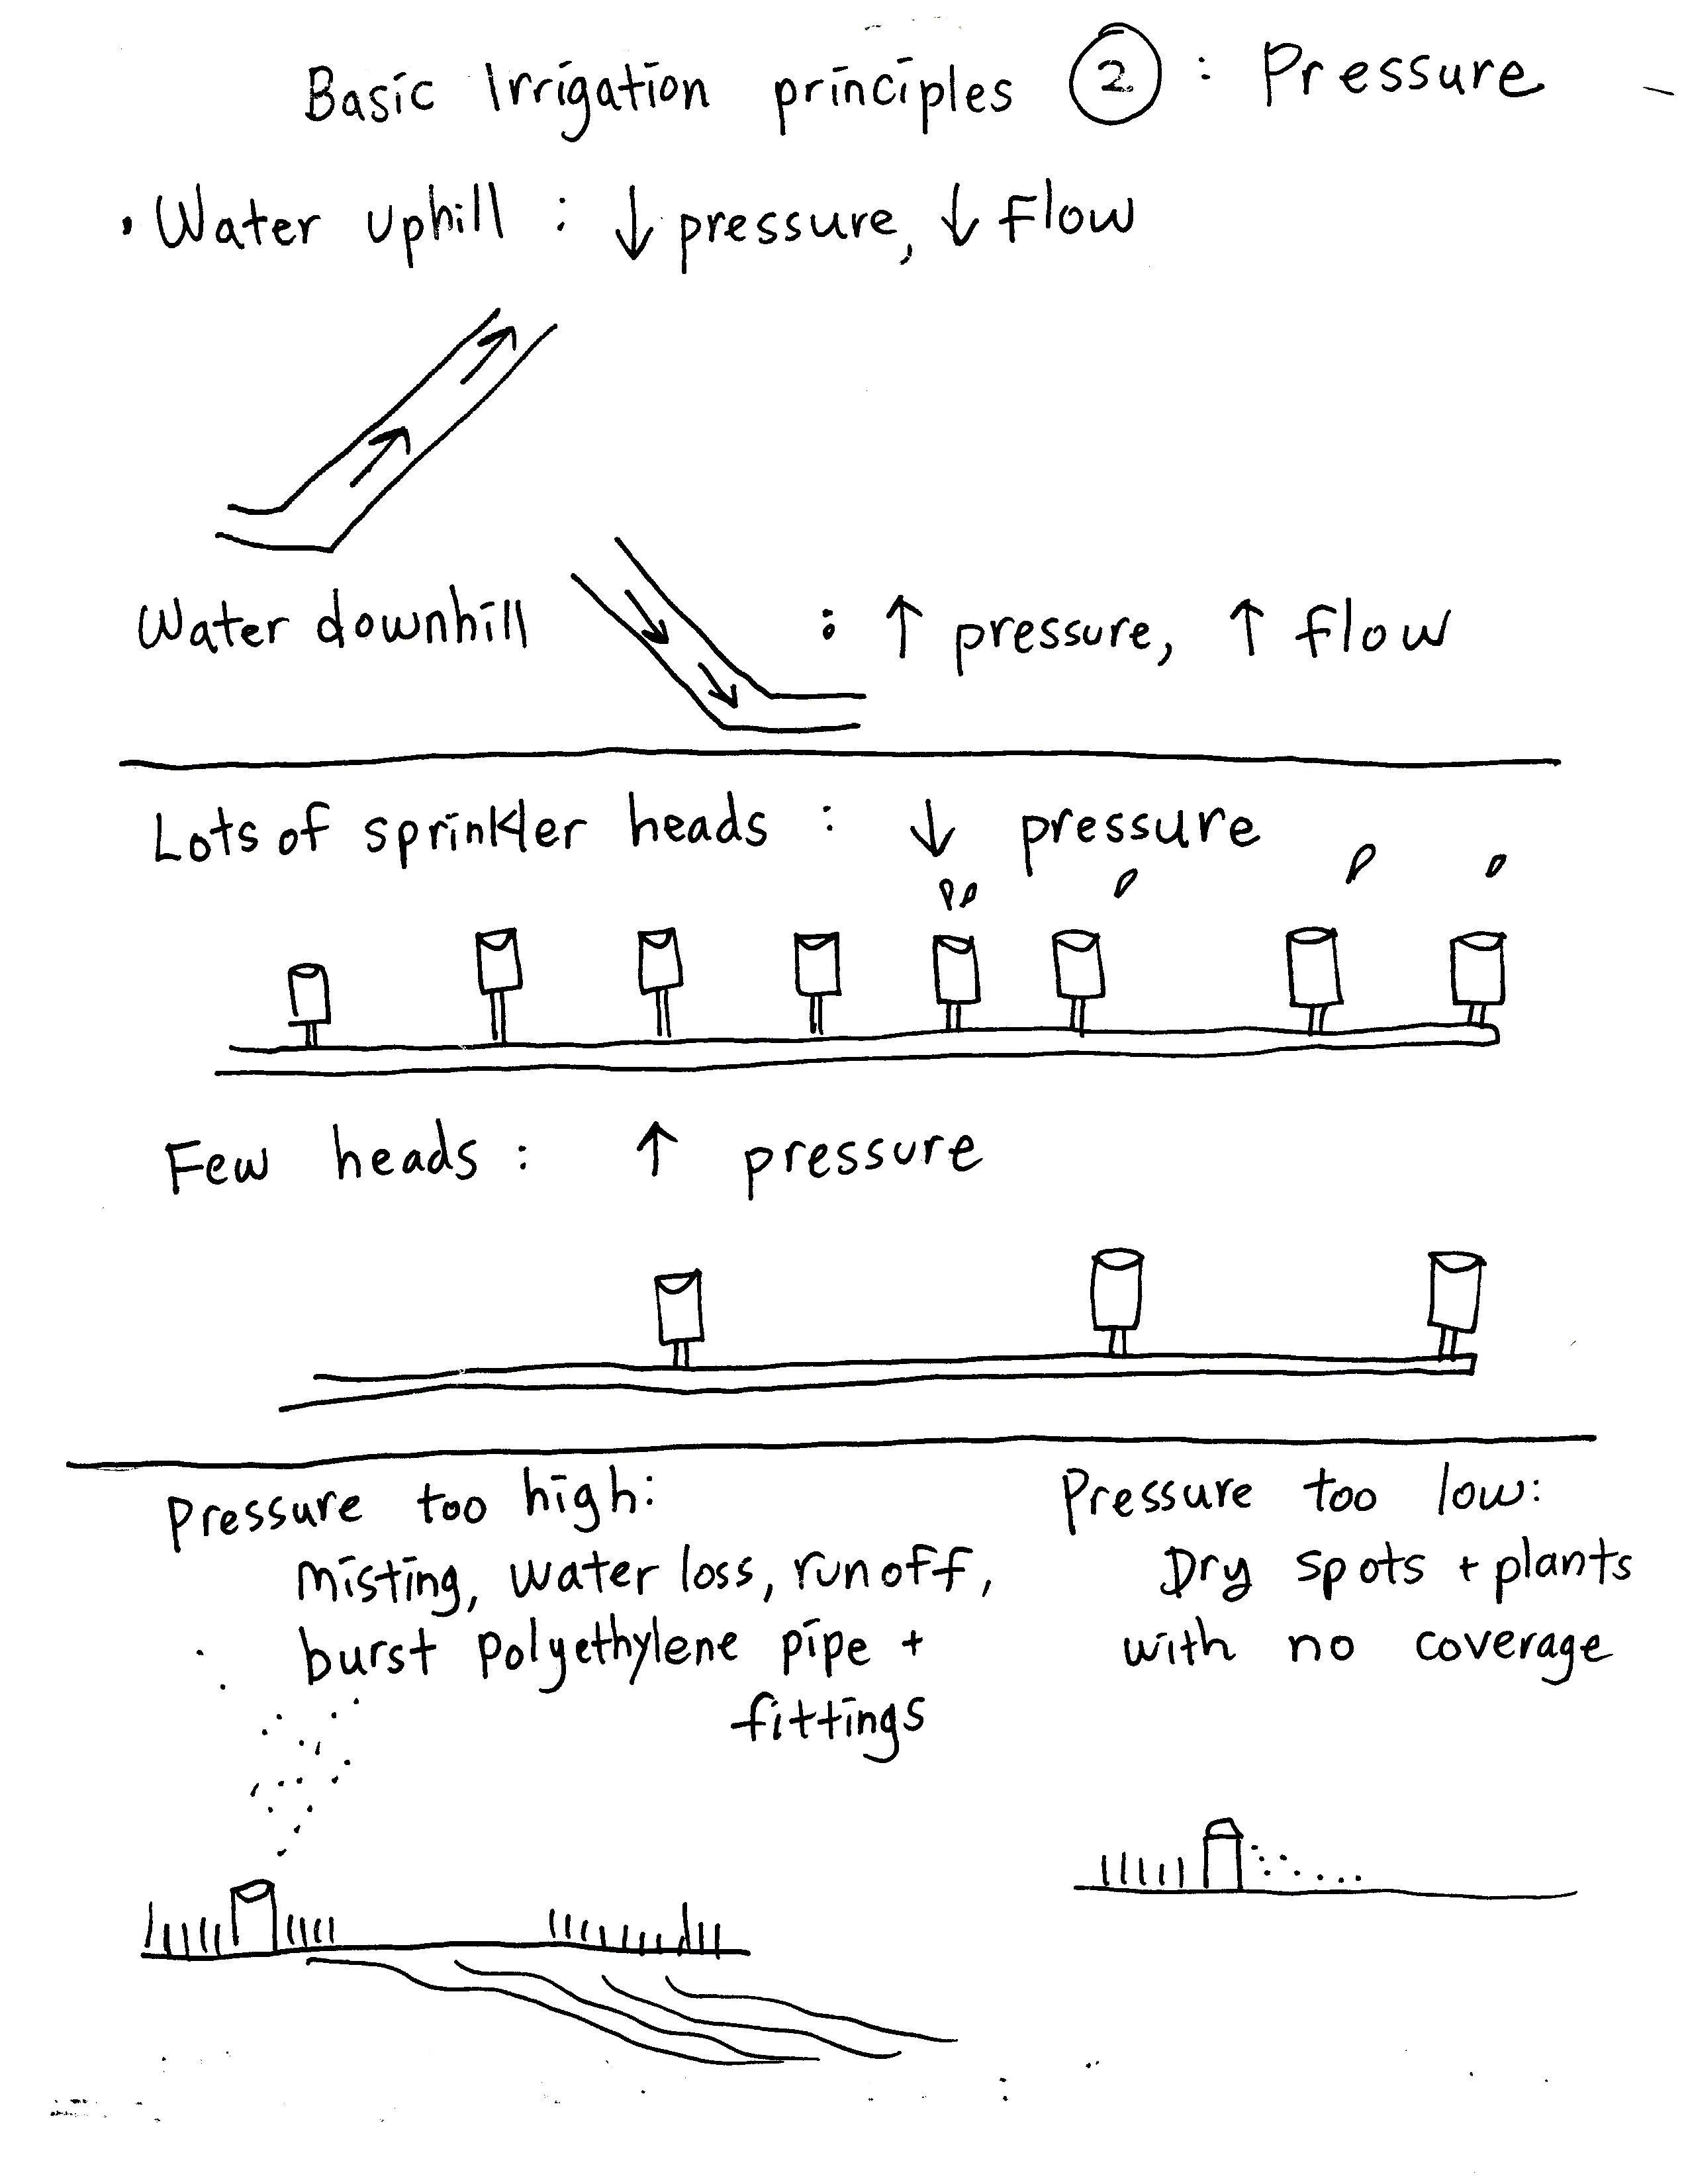 Basic Irrigation principles ② : Pressure
• Water uphill : ↓ pressure, ↓ flow
Water downhill : ↑ pressure, ↑ flow
Lots of sprinkler heads : ↓ pressure
Few heads : ↑ pressure
Pressure too high:
misting, water loss, runoff,
burst polyethylene pipe +
fittings
Pressure too low:
Dry spots + plants
with no coverage